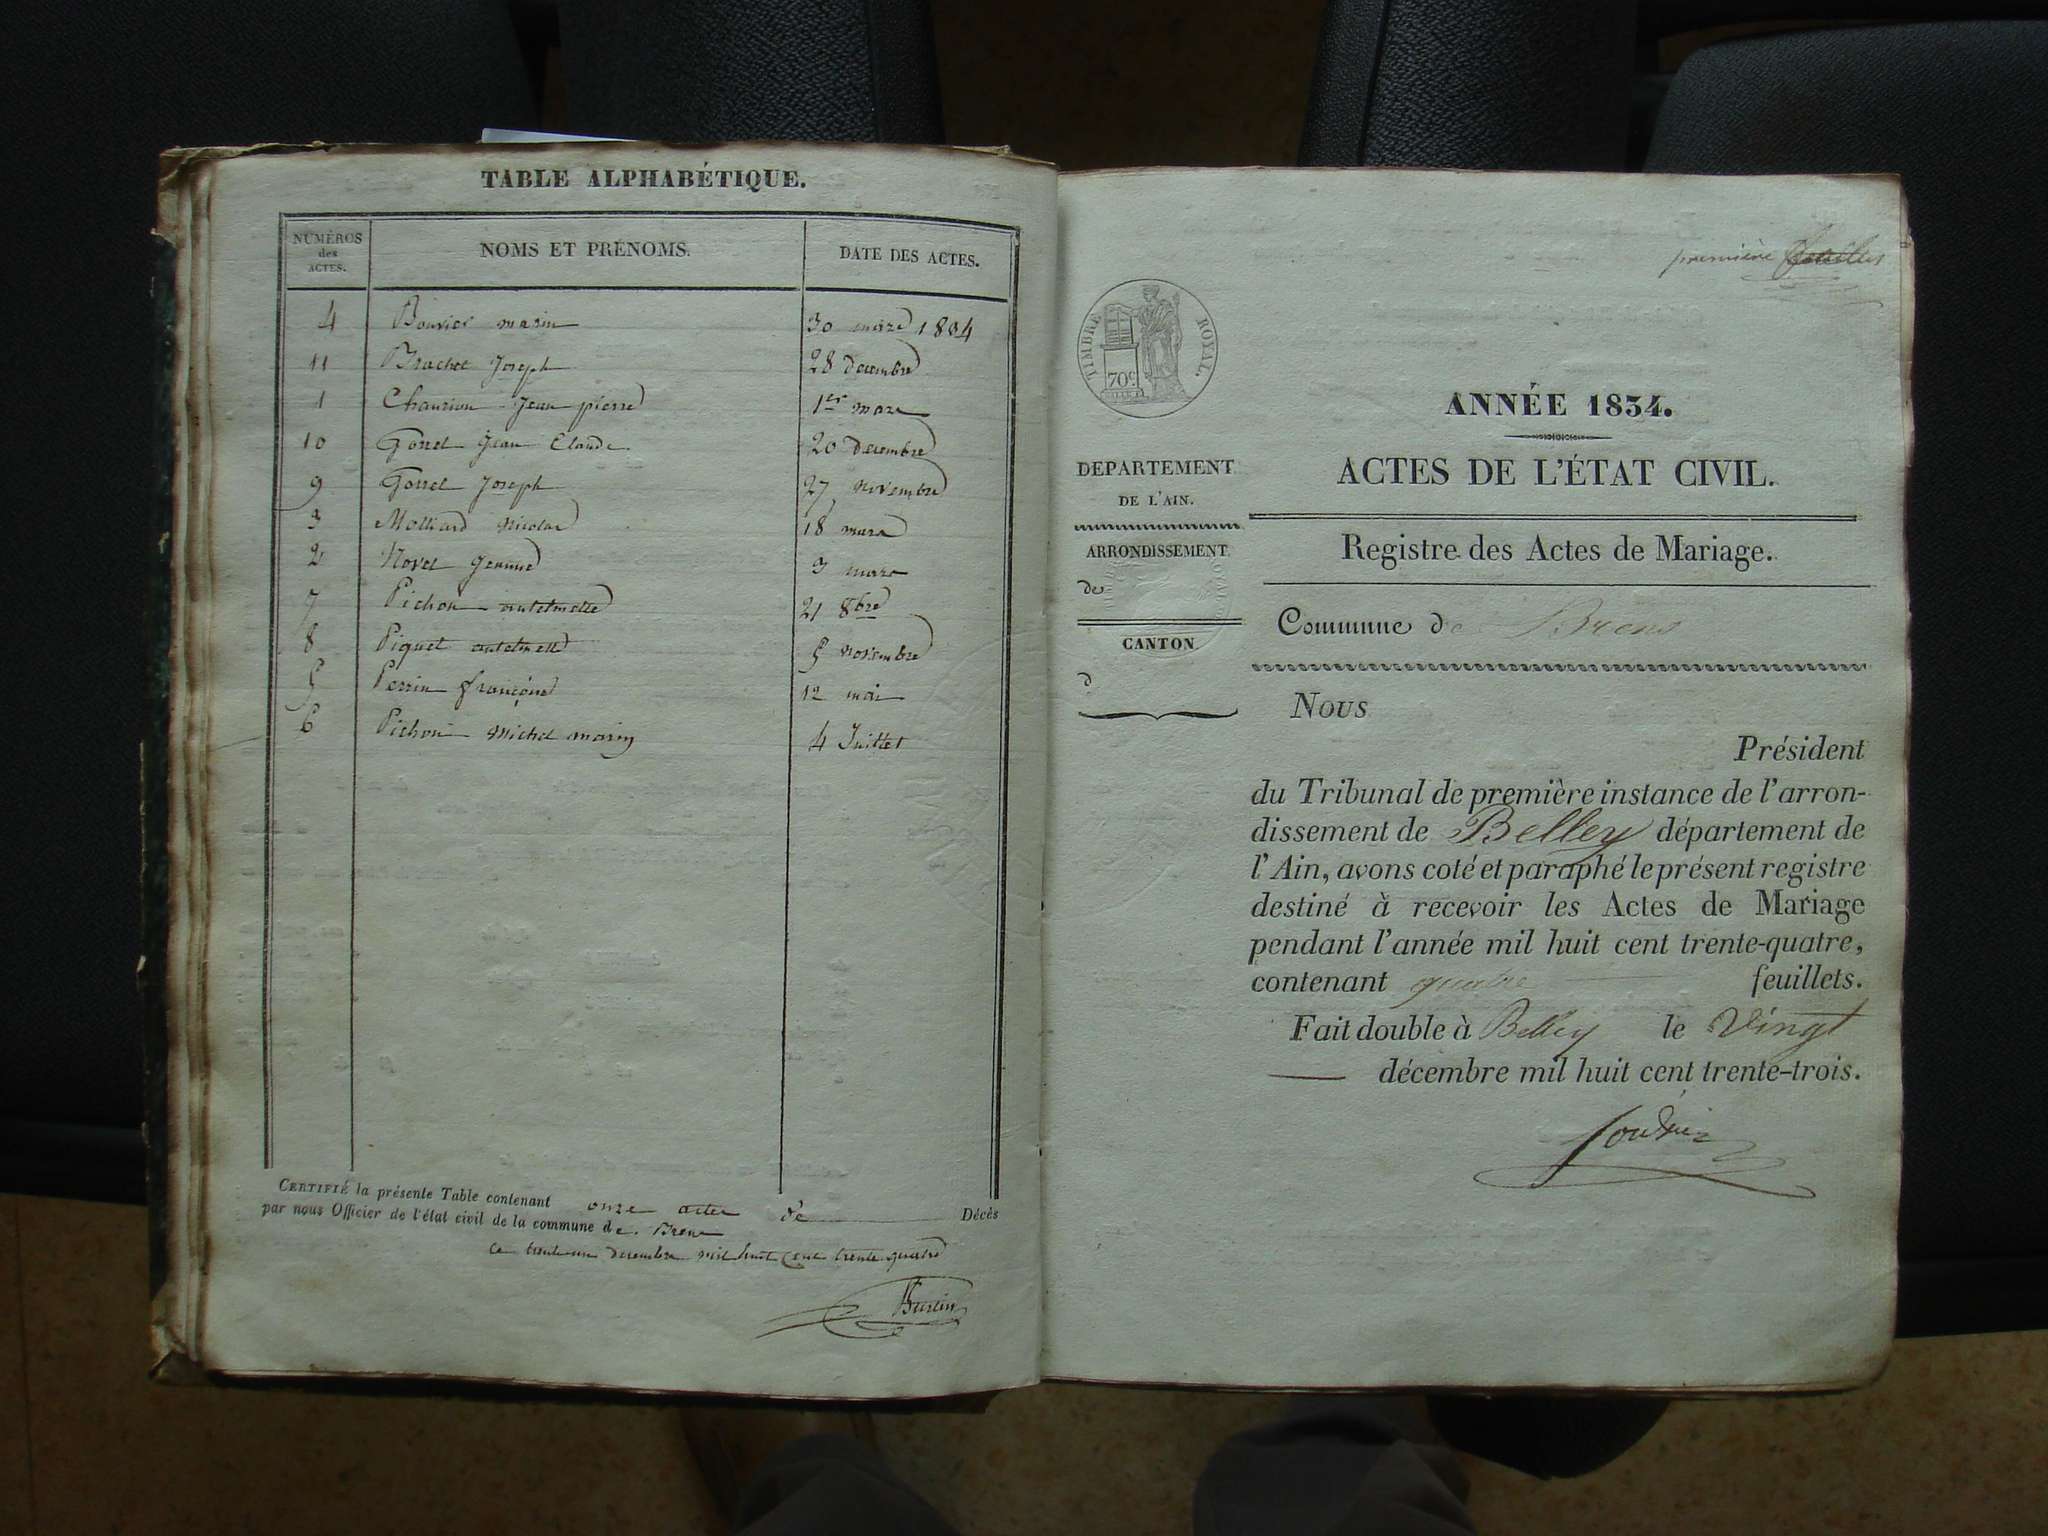 TABLE ALPHABÉTIQUE.
NUMÉROS des ACTES. NOMS ET PRÉNOMS. DATE DES ACTES.
4 Bouvier marin 30 mars 1834
11 Brachet Joseph 28 décembre
1 Jean pierre 1er mars
10 Gorret Jean Claude 20 décembre
9 Gorret Joseph 27 novembre
3 Molliard Nicolas 18 mars
2 Novet 3 mars
7 Pichon antelmette 21 8bre
8 Piquet antelmette 5 novembre
5 Perrin françoise 12 mai
6 Pichon Michel marin 4 Juillet
CERTIFIÉ la présente Table contenant onze actes de Décès
par nous Officier de l'état civil de la commune de Brens
ce trente un decembre mil huit cent trente quatre
première
TIMBRE ROYAL.
70c
ANNÉE 1834.
ACTES DE L'ÉTAT CIVIL.
DEPARTEMENT
DE L'AIN.
ARRONDISSEMENT
de
CANTON
d
Registre des Actes de Mariage.
Commune de Brens
Nous
Président
du Tribunal de première instance de l'arron-
dissement de Belley département de
l'Ain, avons coté et paraphé le présent registre
destiné à recevoir les Actes de Mariage
pendant l'année mil huit cent trente-quatre,
contenant quatre feuillets.
Fait double à Belley le Vingt
décembre mil huit cent trente-trois.